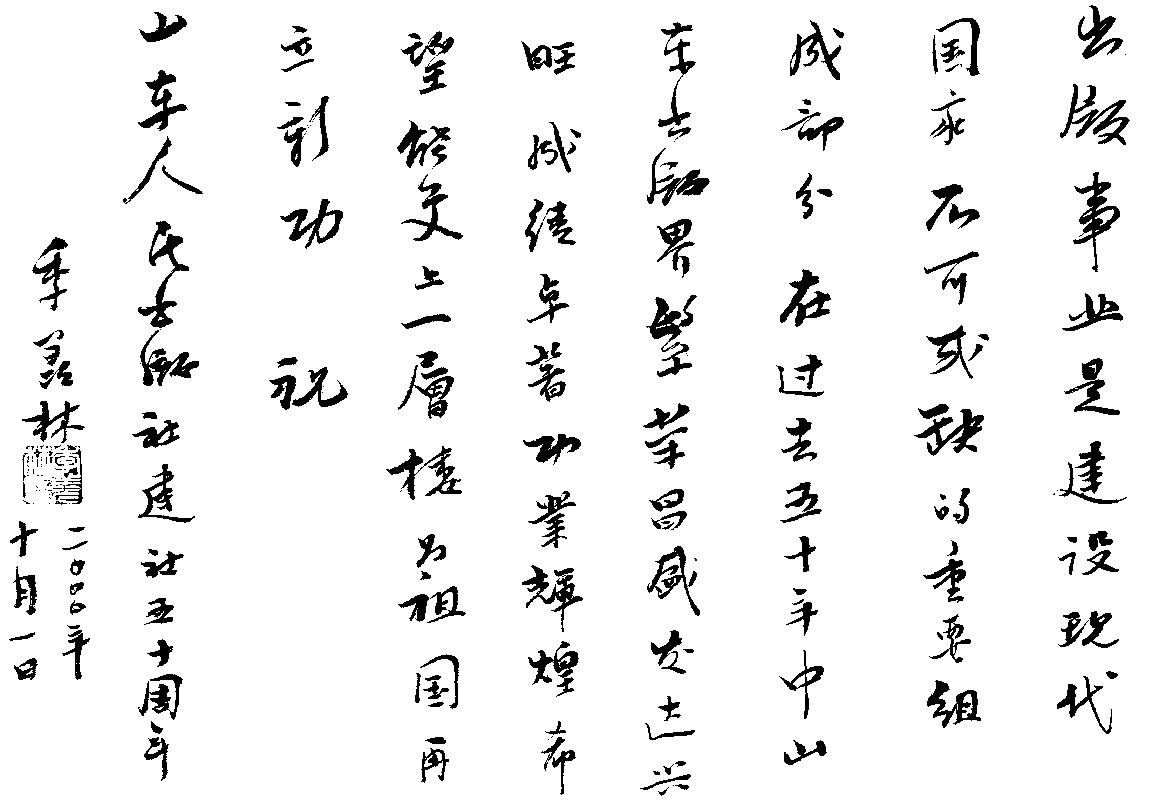 出版事业是建设现代
国家不可或缺的重要组
成部分在过去五十年中山
东出版界繁荣昌盛发达兴
旺成绩卓著功業輝煌希
望能更上一層楼为祖国再
立新功 祝
山东人民出版社建社五十周年
季羡林
二〇〇〇年
十月一日